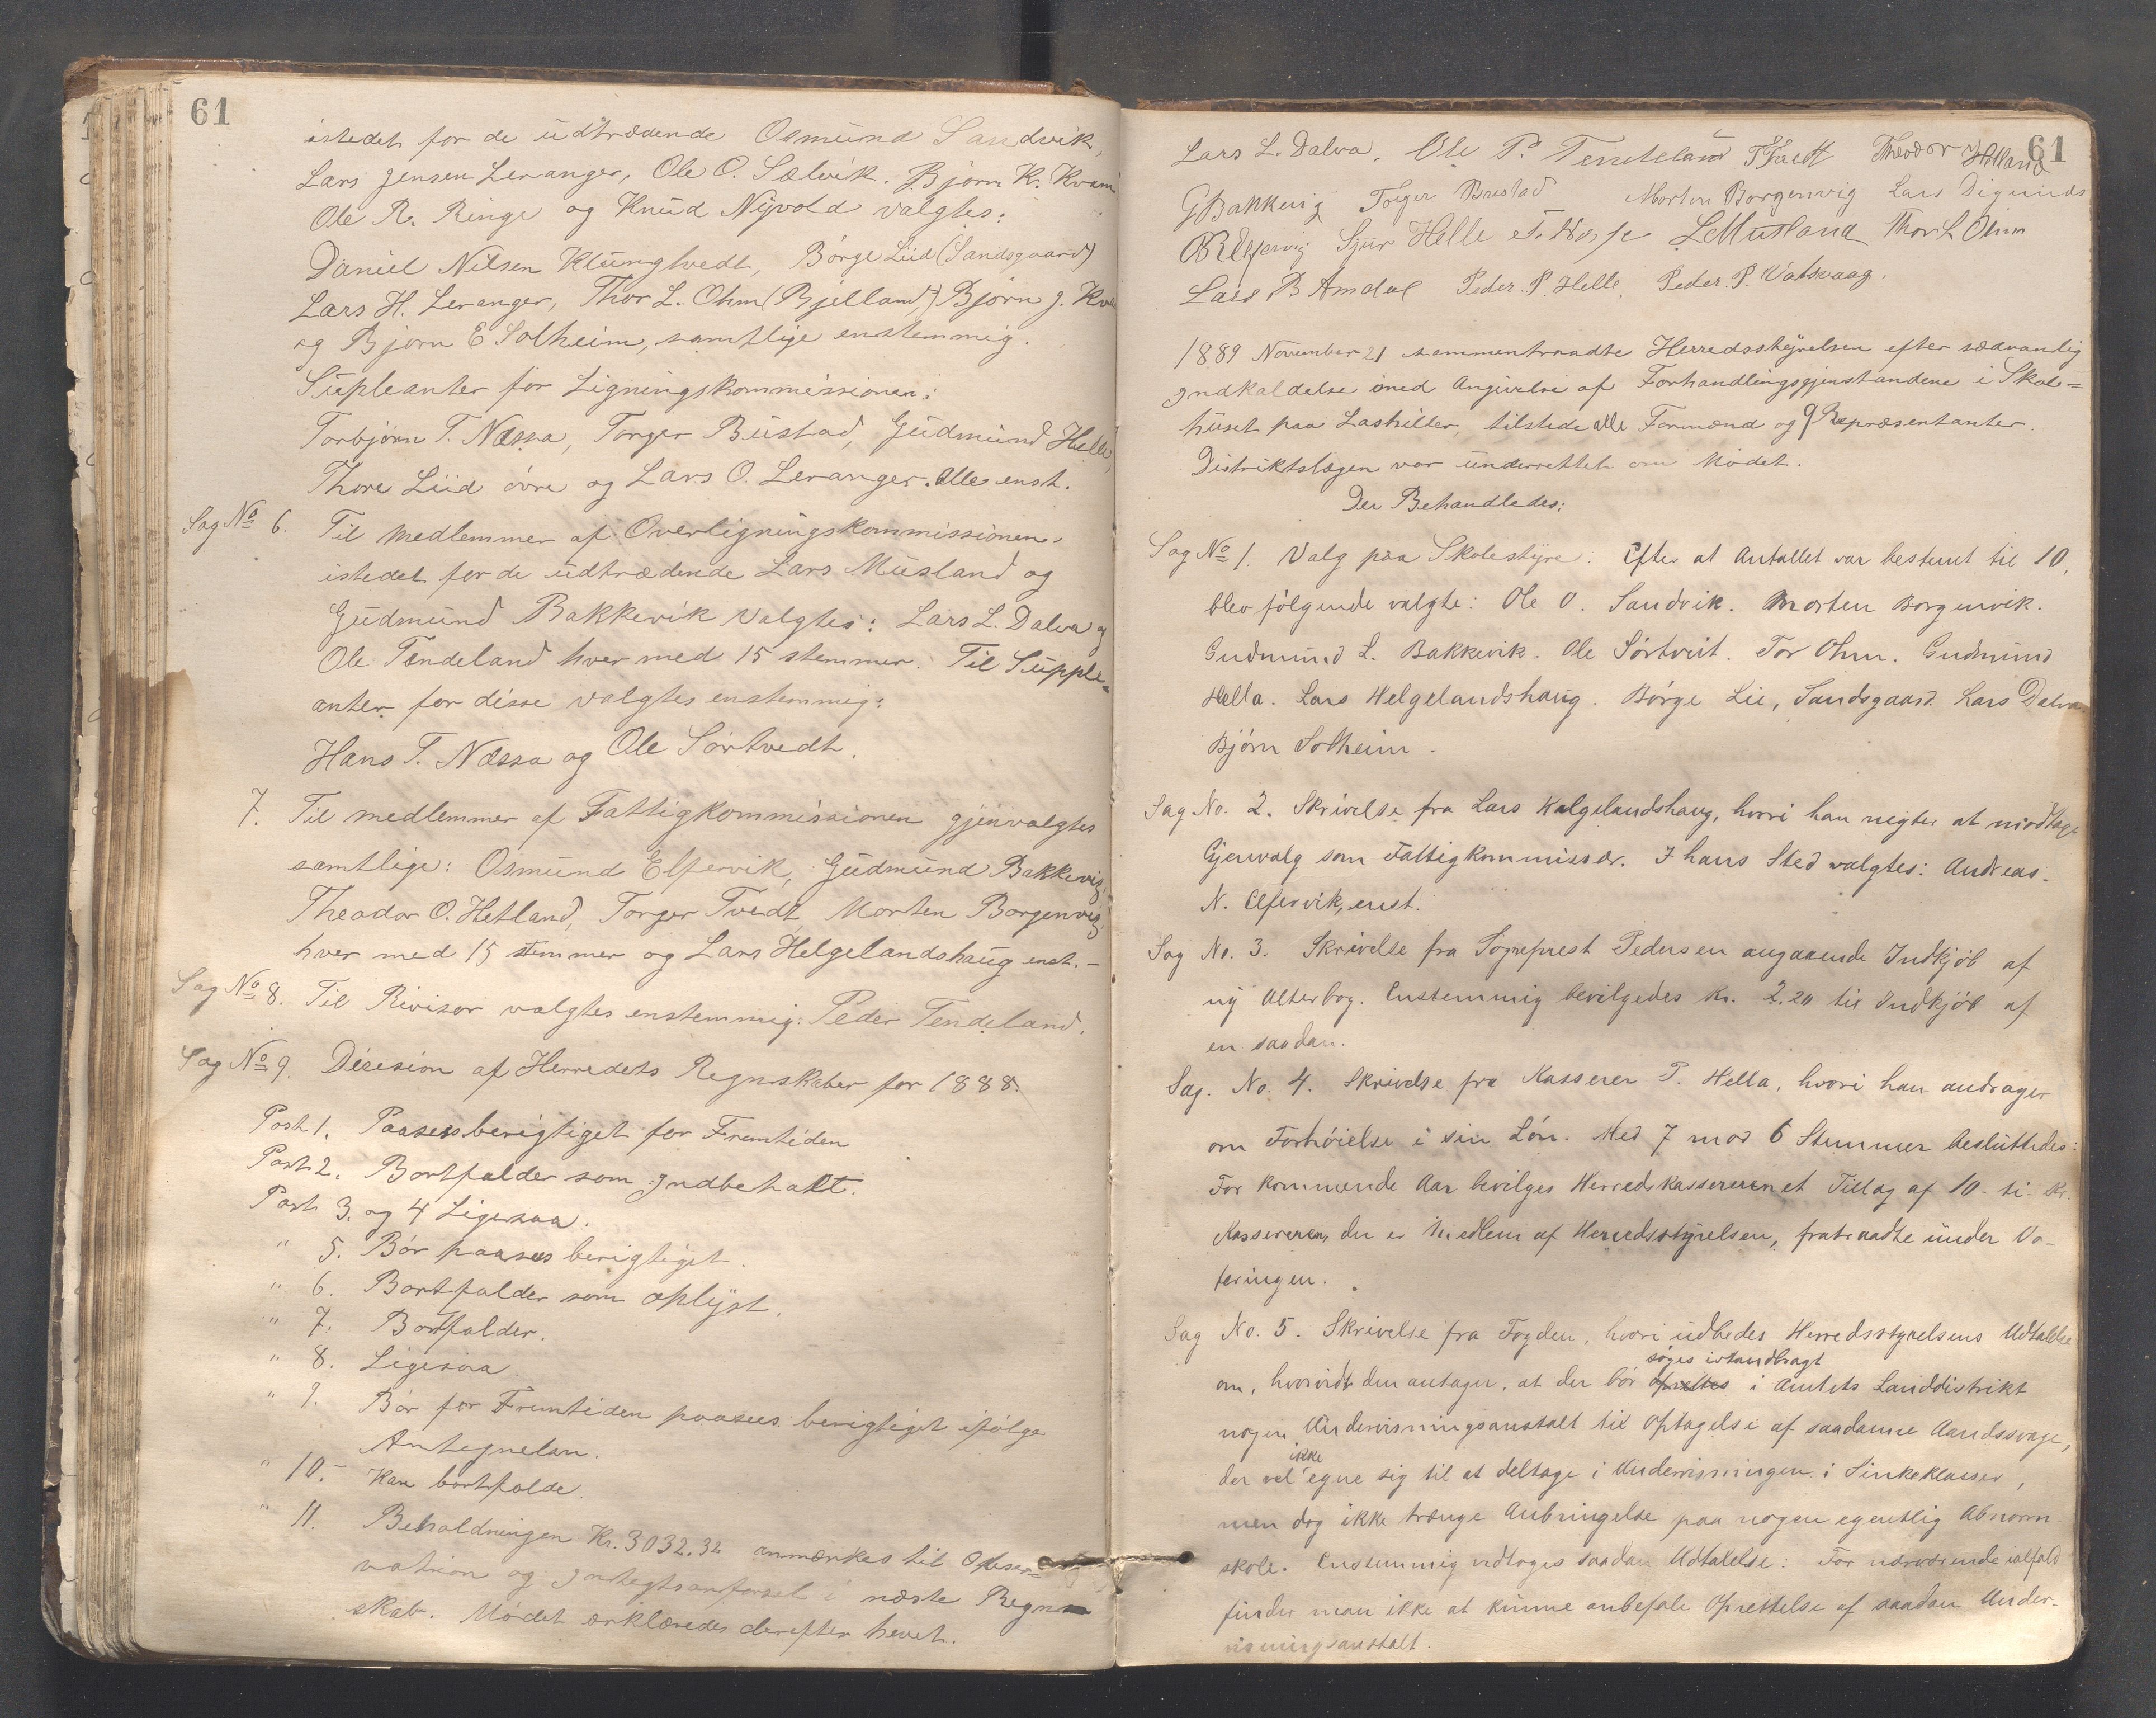 61
istedet for de udtrædende Osmund Sandvik,
Lars Jensen Leranger, Ole O. Sælvik, Bjørn K. Kvam
Ole R. Ringe og Knud Nyvold valgtes:
Daniel Nilsen Klungtvedt, Børge Liid (Sandsgaard)
Lars H. Leranger, Thor L. Ohm (Bjelland) Bjørn J.
og Bjørn E Solheim, samtlige enstemmig.
Supleanter for Ligningskommissionen:
Torbjørn T. Næssa, Torger Bustad, Gudmund Hella,
Thore Liid øvre og Lars O. Leranger. Alle enst.
Sag No 6. Til medlemmer af Overligningskommissionen.
istedet for de udtrædende Lars Musland og
Gudmund Bakkevik valgtes: Lars L. Dalva og
Ole Tendeland hver med 15 stemmer. Til Supple=
anter for disse valgtes enstemmig:
Hans T. Næssa og Ole Sørtvedt.
7. Til medlemmer af Fattigkommissionen gjenvalgtes
samtlige: Osmund Elfervik, Gudmund Bakkevig,
Theodor O. Hetland, Torger Tvedt, Morten Borgenvig,
hver med 15 stemmer og Lars Helgelandshaug enst. –
Sag No 8. Til Rivisor valgtes enstemmig: Peder Tendeland.
Sag No 9. Decision af Herredets Regnskaber for 1888.
Post 1. Paasees berigtiget for Fremtiden
Post 2. Bortfalder som Indbetalt.
Post 3. og 4 Ligesaa.
" 5. Bør paasees berigtiget.
" 6. Bortfalder som oplyst.
" 7. Bortfalder.
" 8. Ligesaa
" 9. Bør for Fremtiden paasees berigtiget ifølge
Antegnelsen.
" 10. Kan bortfalde.
" 11. Beholdningen Kr. 3032.32 anmærkes til Obser=
vation og Indtægtsanførsel i næste Regn=
skab. Mødet erklæredes derefter hevet.
61
Lars L. Dalva. Ole P. Tendeland T Tvedt Theodor Hetland
G Bakkevig Torger Bustad Morten Borgenvig Lars
Sjur Helle T. Næsse L Musland Thor L Ohm
Lars B Amdal Peder. P. Helle, Peder. P. Vatsvaag.
1889 November 21 sammentraadte Herredsstyrelsen efter sædvanlig
Indkaldelse med Angivelse af Forhandlingsgjenstandene i Skole=
huset paa Laskilter, tilstede alle Formænd og 9 Repræsentanter.
Distriktslægen var underrettet om Mødet.
Der Behandledes:
Sag No 1. Valg paa Skolestyre. Efter at Antallet var bestemt til 10,
blev følgende valgte: Ole O. Sandvik. Morten Borgenvik.
Gudmund L. Bakkevik. Ole Sørtveit. Tor Ohm. Gudmund
Hella. Lars Helgelandshaug. Børge Lie, Sandsgaard. Lars Dalva
Bjørn Solheim.
Sag No. 2. Skrivelse fra Lars Halgelandshaug, hvori han negter at modtage
Gjenvalg som Fattigkommissær. I hans Sted valgtes: Andreas
N. Elfervik, enst.
Sag No. 3. Skrivelse fra Sogneprest Pedersen angaaende Indkjøb af
ny Alterbog. Enstemmig bevilgedes Kr. 2.20 til Indkjøb af
en saadan.
Sag. No. 4. Skrivelse fra Kasserer P. Hella, hvori han andrager
om Forhøielse i sin Løn. Med 7 mod 6 Stemmer besluttedes:
For kommende Aar bevilges Herredskassereren et Tillæg af 10 – ti – Kr.
Kassereren, der er Medlem af Herredsstyrelsen, fratraadte under Vo-
teringen.
Sag No. 5. Skrivelse fra Fogden, hvori udbedes Herredsstyrelsens Udtalelse
om, hvorvidt den antager, at der bør oprettes søges istandbragt i Amtets Landdistrikt
nogen Undervisningsanstalt til Optagelse af saadanne Aandssvage,
der vel ikke egne sig til at deltage i Undervisningen i Sinkeklasser,
men dog ikke trænge Anbringelse paa nogen egentlig Abnorm-
skole. Enstemmig vedtoges saadan Udtalelse: For nærværende ialfald
finder man ikke at kunne anbefale Oprettelse af saadan Under-
visningsanstalt.